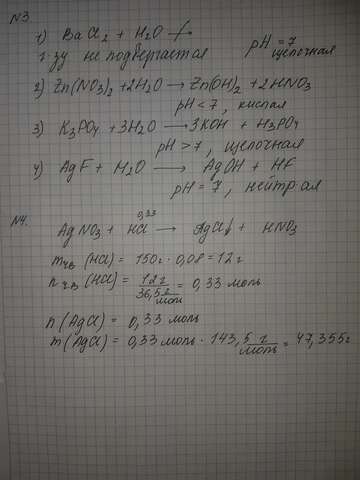 N3.
1) BaCl2 + H2O ⇸
г-зу не подвергается pH = 7
щелочная
2) Zn(NO3)2 + 2H2O → Zn(OH)2 + 2HNO3
pH < 7, кислая
3) K3PO4 + 3H2O → 3KOH + H3PO4
pH > 7, щелочная
4) AgF + H2O → AgOH + HF
pH = 7, нейтрал
N4.
0,33
AgNO3 + HCl → AgCl↓ + HNO3
mчв (HCl) = 150г · 0,08 = 12 г
n чв (HCl) = 12г / 36,5 г/моль = 0,33 моль
n (AgCl) = 0,33 моль
m (AgCl) = 0,33 моль · 143,5 г/моль = 47,355г